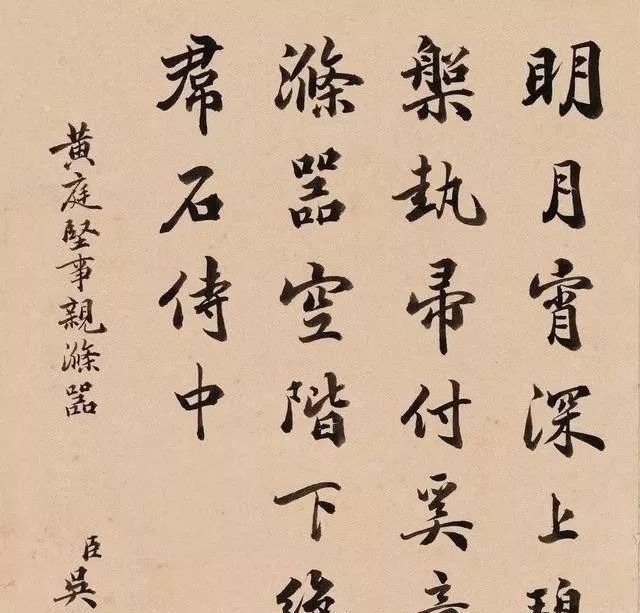 明月宵深上碧
槃執帚付奚
滌器空階下
帬石侍中
黃庭堅事親滌器
臣吳